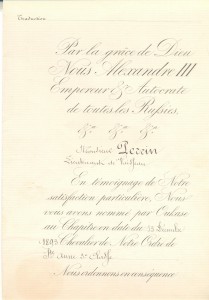 Traduction
Par la grâce de Dieu
Nous Alexandre III
Empereur & Autocrate
de toutes les Russies
&ca &ca &ca
Monsieur Perrin
Lieutenant de Vaisseau
En témoignage de Notre
satisfaction particulière, Nous
vous avons nommé par Oukase
au Chapitre en date du
1893 Chevalier de Notre Ordre de
Ste Anne 3e Classe
Nous ordonnons en conséquence